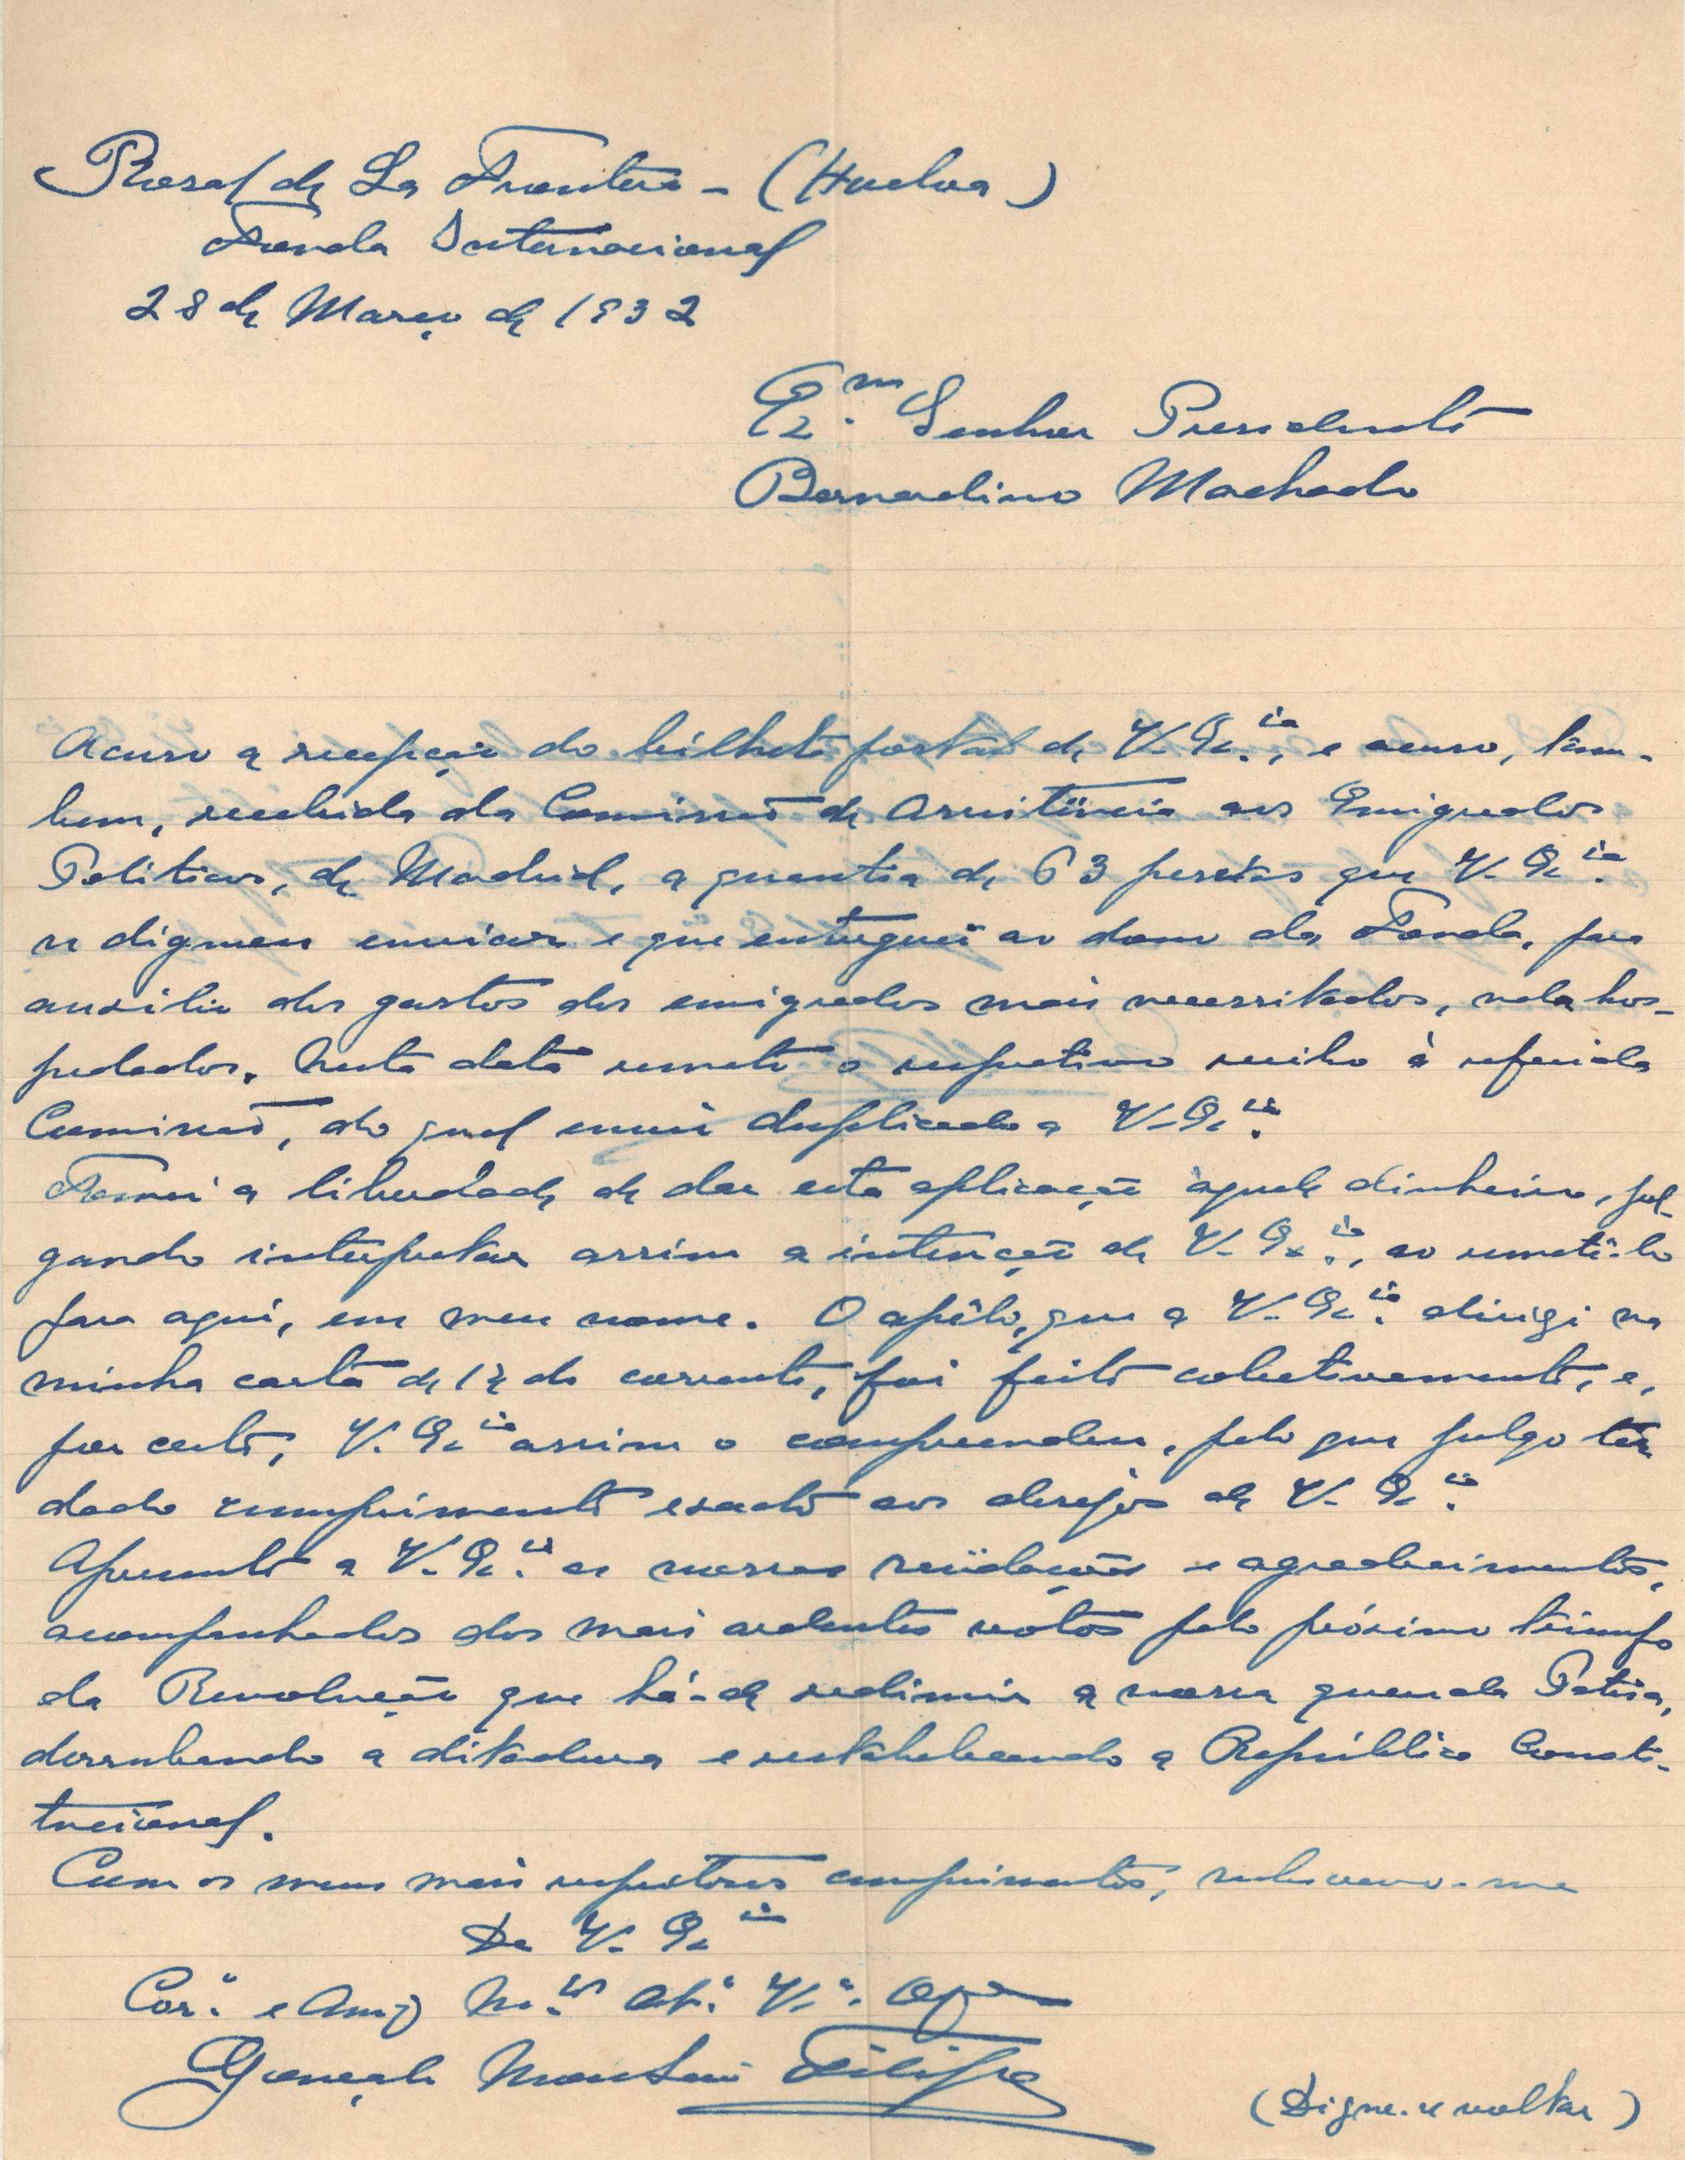 Rosal de La Frontera - (Huelva)
Fonda Internacional
28 de Março de 1932
Ex.mo Senhor Presidente
Bernardino Machado
Acuso a recepção do bilhete postal de V. Ex.cia, e acuso, tam-
bem, recebida da Comissão de Assistência aos Emigrados
Politicos, de Madrid, a quantia de 63 pesetas que V. Ex.cia
se dignou enviar e que entreguei ao dono da Fonda, para
auxilio dos gastos dos emigrados mais necessitados, nela hos-
pedados. Nesta data remeto o respectivo recibo à referida
Comissão, do qual envio duplicado a V. Ex.cia
Tomei a liberdade de dar esta aplicação àquele dinheiro, jul-
gando interpretar assim a intenção de V. Ex.cia, ao remetê-lo
para aqui, em meu nome. O apêlo, que a V. Ex.cia dirigi na
minha carta de do corrente, foi feito coletivamente, e,
por certo, V. Ex.cia assim o compreendeu, pelo que julgo têr
dado cumprimento exacto aos desejos de V. Ex.cia
Apresento a V. Ex.cia as nossas saüdações e agradecimentos,
acompanhados dos mais ardentes votos pelo próximo triunfo
da Revolução que há-de redimir a nossa querida Patria,
derrubando a ditadura e restabelecendo a República Consti-
tucional.
Com os meus mais respeitosos cumprimentos, subscrevo-me
De V. Ex.cia
Cor.o e Am.o M.to At.o V.or Obg.do
Gonçalo Monteiro Filipe
(Digne-se voltar)